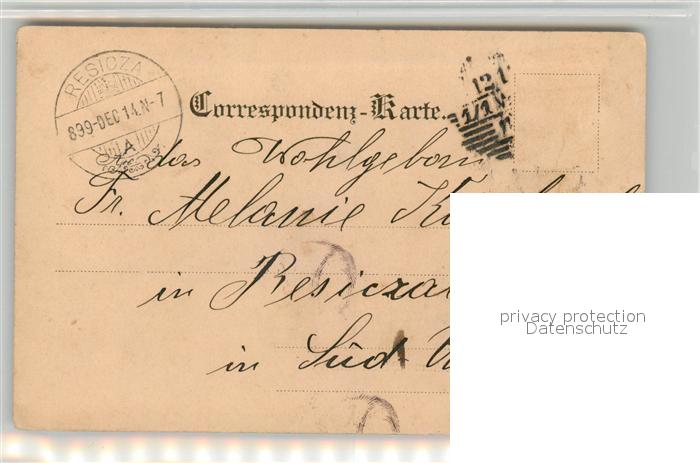 RESICZA
899-DEC 14.N-7
A
12 1
Correspondenz-Karte.
das Wohlgeborn
Fr. Melanie
in Resicza
in Süd
privacy protection
Datenschutz